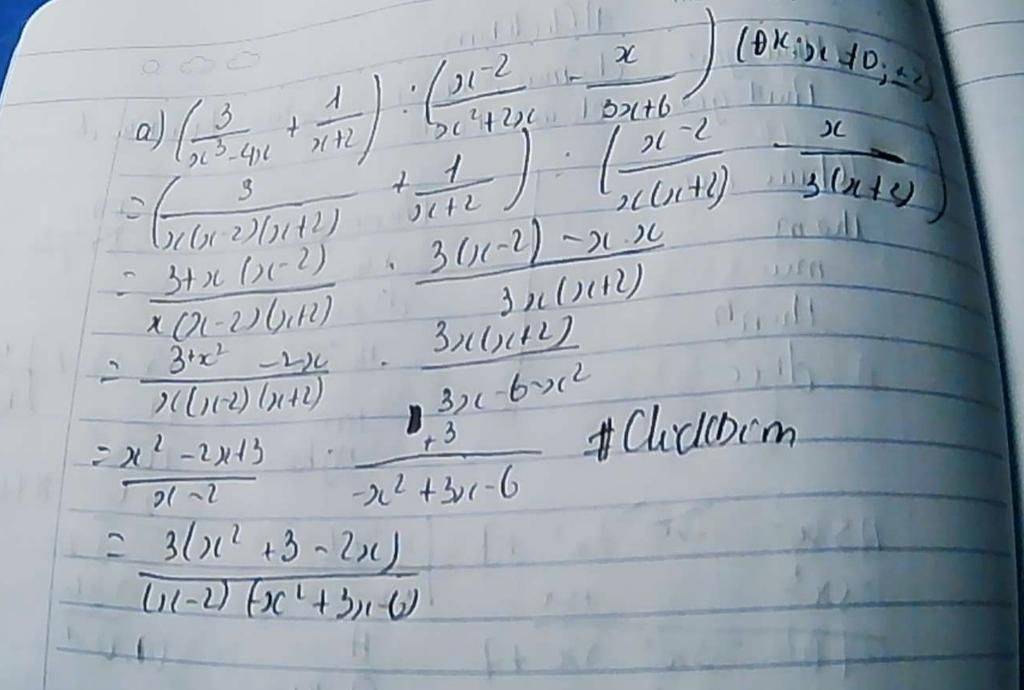 a) (3/(x³-4x) + 1/(x+2)) : ((x-2)/(x²+2x) - x/(3x+6)) (ĐK: x ≠ 0; ±2)
= (3/(x(x-2)(x+2)) + 1/(x+2)) : ((x-2)/(x(x+2)) - x/(3(x+2)))
= (3+x(x-2))/(x(x-2)(x+2)) : (3(x-2)-x.x)/(3x(x+2))
= (3+x²-2x)/(x(x-2)(x+2)) . (3x(x+2))/(3x-6-x²)
= (x²-2x+3)/(x-2) . (+3)/(-x²+3x-6)
= (3(x²+3-2x))/((x-2)(-x²+3x-6))